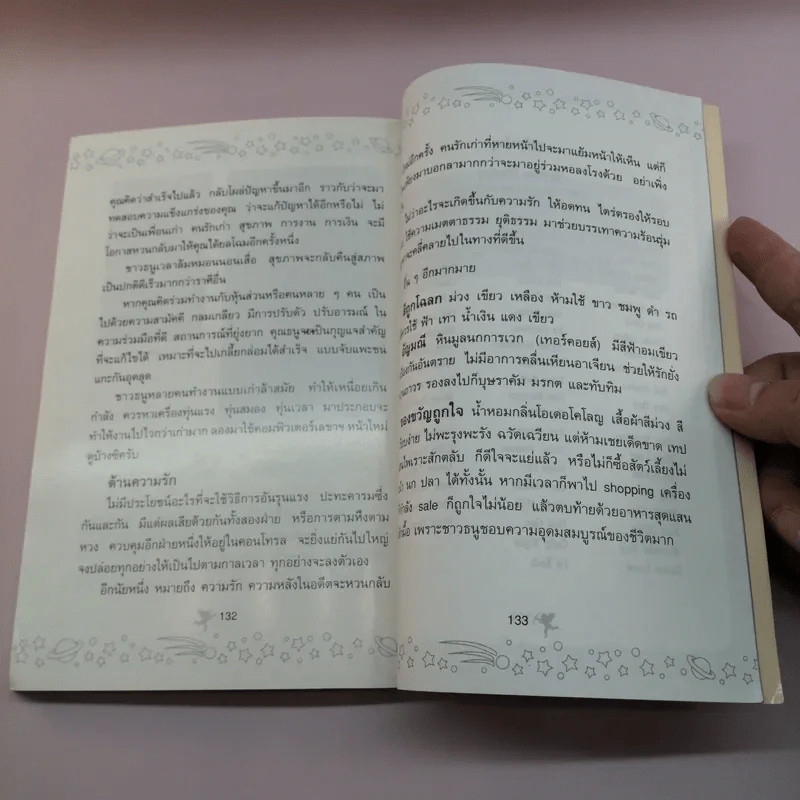 คุณคิดว่าสำเร็จไปแล้ว กลับโผล่ปัญหาขึ้นมาอีก ราวกับว่าจะมา
ทดสอบความแข็งแกร่งของคุณ ว่าจะแก้ปัญหาได้อีกหรือไม่ ไม่
ว่าจะเป็นเพื่อนเก่า คนรักเก่า สุขภาพ การงาน การเงิน จะมี
โอกาสหวนกลับมาให้คุณได้ยลโฉมอีกครั้งหนึ่ง
ชาวธนูเวลาล้มหมอนนอนเสื่อ สุขภาพจะกลับคืนสู่สภาพ
เป็นปกติดีเร็วมากกว่าราศีอื่น
หากคุณคิดร่วมทำงานกับหุ้นส่วนหรือคนหลาย ๆ คน เป็น
ไปด้วยความสามัคคี กลมเกลียว มีการปรับตัว ปรับอารมณ์ ใน
ความร่วมมือที่ดี สถานการณ์ที่ยุ่งยาก คุณธนูจะเป็นกุญแจสำคัญ
ที่จะแก้ไขได้ เหมาะที่จะไปเกลี้ยกล่อมได้สำเร็จ แบบจับแพะชน
แกะกันอุตลุด
ชาวธนูหลายคนทำงานแบบเก่าล้าสมัย ทำให้เหนื่อยเกิน
กำลัง ควรหาเครื่องทุ่นแรง ทุ่นสมอง ทุ่นเวลา มาประกอบจะ
ทำให้งานไปไวกว่าเก่ามาก ลองมาใช้คอมพิวเตอร์เลขาฯ หน้าใหม่
ดูบ้างซิครับ
ด้านความรัก
ไม่มีประโยชน์อะไรที่จะใช้วิธีการอันรุนแรง ปะทะคารมซึ่ง
กันและกัน มีแต่ผลเสียด้วยกันทั้งสองฝ่าย หรือการตามหึงตาม
หวง ควบคุมอีกฝ่ายหนึ่งให้อยู่ในคอนโทรล จะยิ่งแย่กันไปใหญ่
จงปล่อยทุกอย่างให้เป็นไปตามกาลเวลา ทุกอย่างจะลงตัวเอง
อีกนัยหนึ่ง หมายถึง ความรัก ความหลังในอดีตจะหวนกลับ
132
อีกครั้ง คนรักเก่าที่หายหน้าไปจะมาแย้มหน้าให้เห็น แต่ก็
มาบอกลามากกว่าจะมาอยู่ร่วมหอลงโรงด้วย อย่าเพิ่ง
ไม่ว่าอะไรจะเกิดขึ้นกับความรัก ให้อดทน ไตร่ตรองให้รอบ
ใช้ความเมตตาธรรม ยุติธรรม มาช่วยบรรเทาความร้อนรุ่ม
จะคลี่คลายไปในทางที่ดีขึ้น
อื่น ๆ อีกมากมาย
ถูกโฉลก ม่วง เขียว เหลือง ห้ามใช้ ขาว ชมพู ดำ รถ
ควรใช้ ฟ้า เทา น้ำเงิน แดง เขียว
อัญมณี หินมูลนกการเวก (เทอร์คอยส์) มีสีฟ้าอมเขียว
ป้องกันอันตราย ไม่มีอาการคลื่นเหียนอาเจียน ช่วยให้รักยั่ง
ถาวร รองลงไปก็บุษราคัม มรกต และทับทิม
ของขวัญถูกใจ น้ำหอมกลิ่นโอเดอโคโลญ เสื้อผ้าสีม่วง สี
ง่าย ไม่พะรุงพะรัง ฉวัดเฉวียน แต่ห้ามเชยเด็ดขาด เทป
ไพเราะสักตลับ ก็ดีใจจะแย่แล้ว หรือไม่ก็ซื้อสัตว์เลี้ยงไม่
นก ปลา ได้ทั้งนั้น หากมีเวลาก็พาไป shopping เครื่อง
กำลัง sale ก็ถูกใจไม่น้อย แล้วตบท้ายด้วยอาหารสุดแสน
มื้อ เพราะชาวธนูชอบความอุดมสมบูรณ์ของชีวิตมาก
133